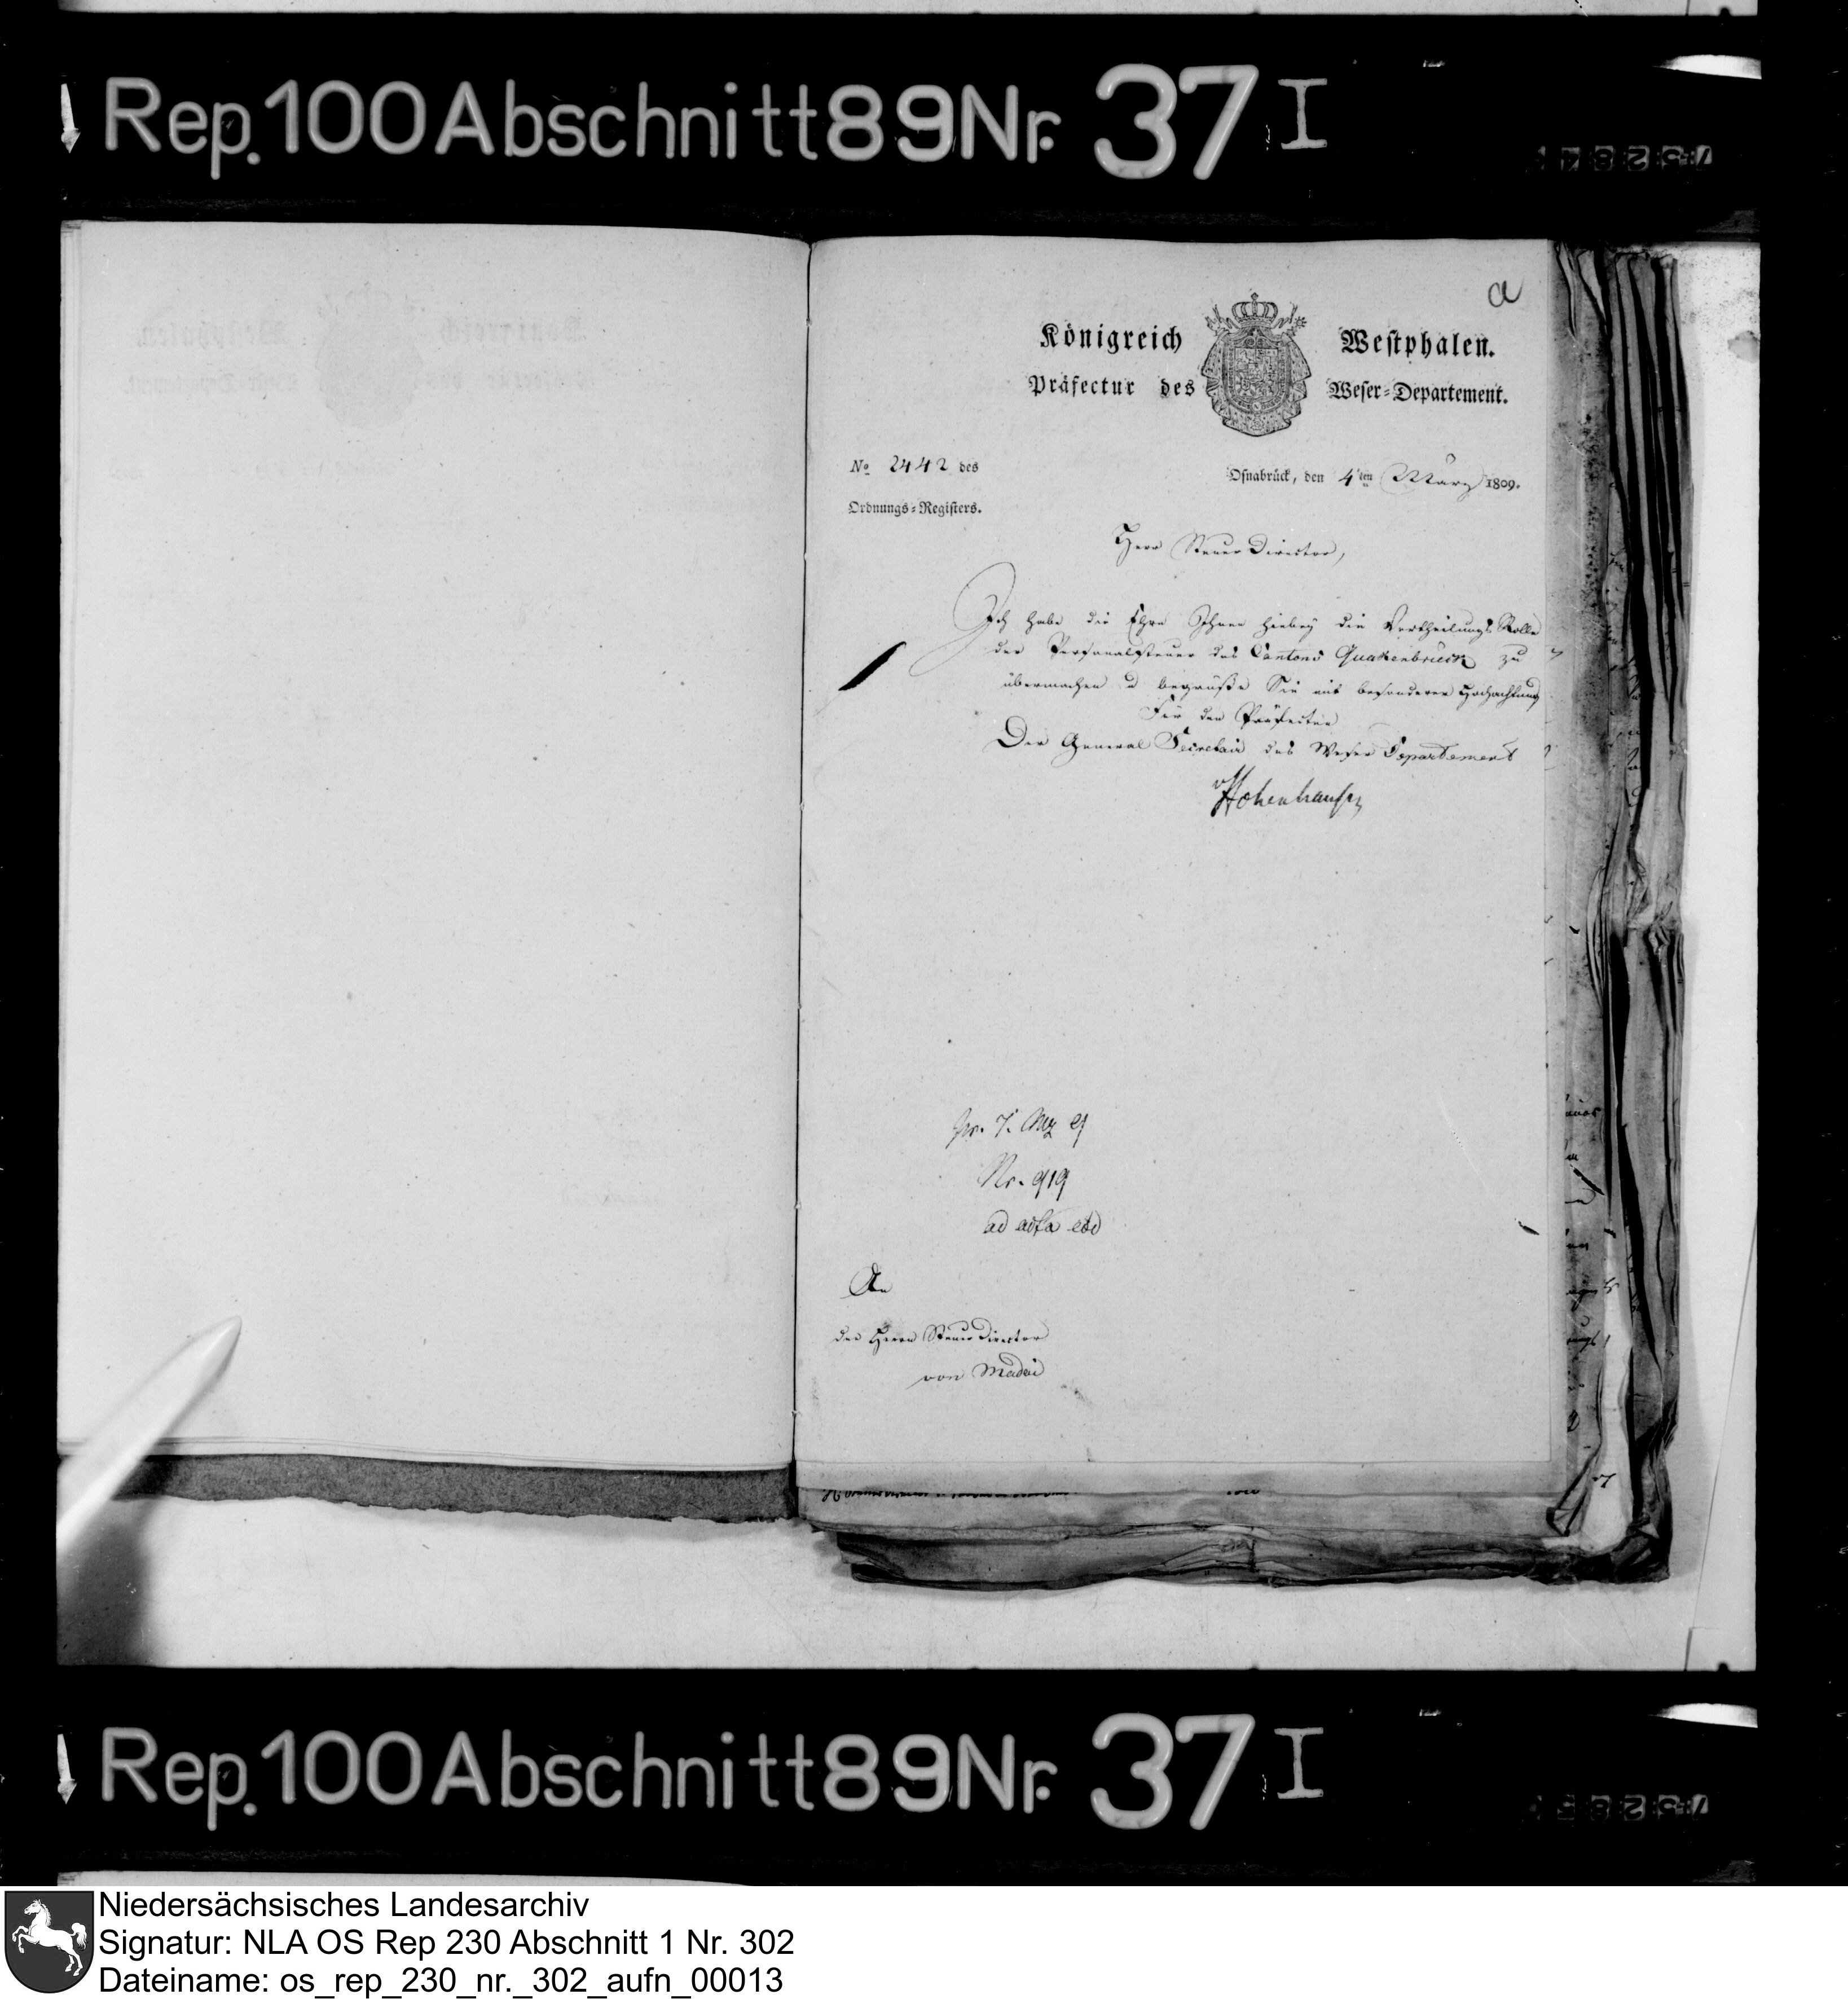 Rep.100 Abschnitt 89 Nr. 37 I
a
Königreich Westphalen.
Präfectur des Weser=Departement.
No 2442 des
Ordnungs=Registers.
Osnabrück, den 4ten März 1809.
Herr Steuer Director,
Ich habe die Ehre Ihnen hiebey die Vertheilungs Rolle
der Personalsteuer des Cantons Quakenbrück zu
übermachen u begrüße Sie mit besonderer Hochachtung
Für den Präfecten
Der General Secretair des Weser Departement
vHohenhausen
pr. 7. Mrz 9
Nr. 919
ad acta
An
den Herrn Steuer Director
von Madai
Rep.100 Abschnitt 89 Nr. 37 I
Niedersächsisches Landesarchiv
Signatur: NLA OS Rep 230 Abschnitt 1 Nr. 302
Dateiname: os_rep_230_nr._302_aufn_00013